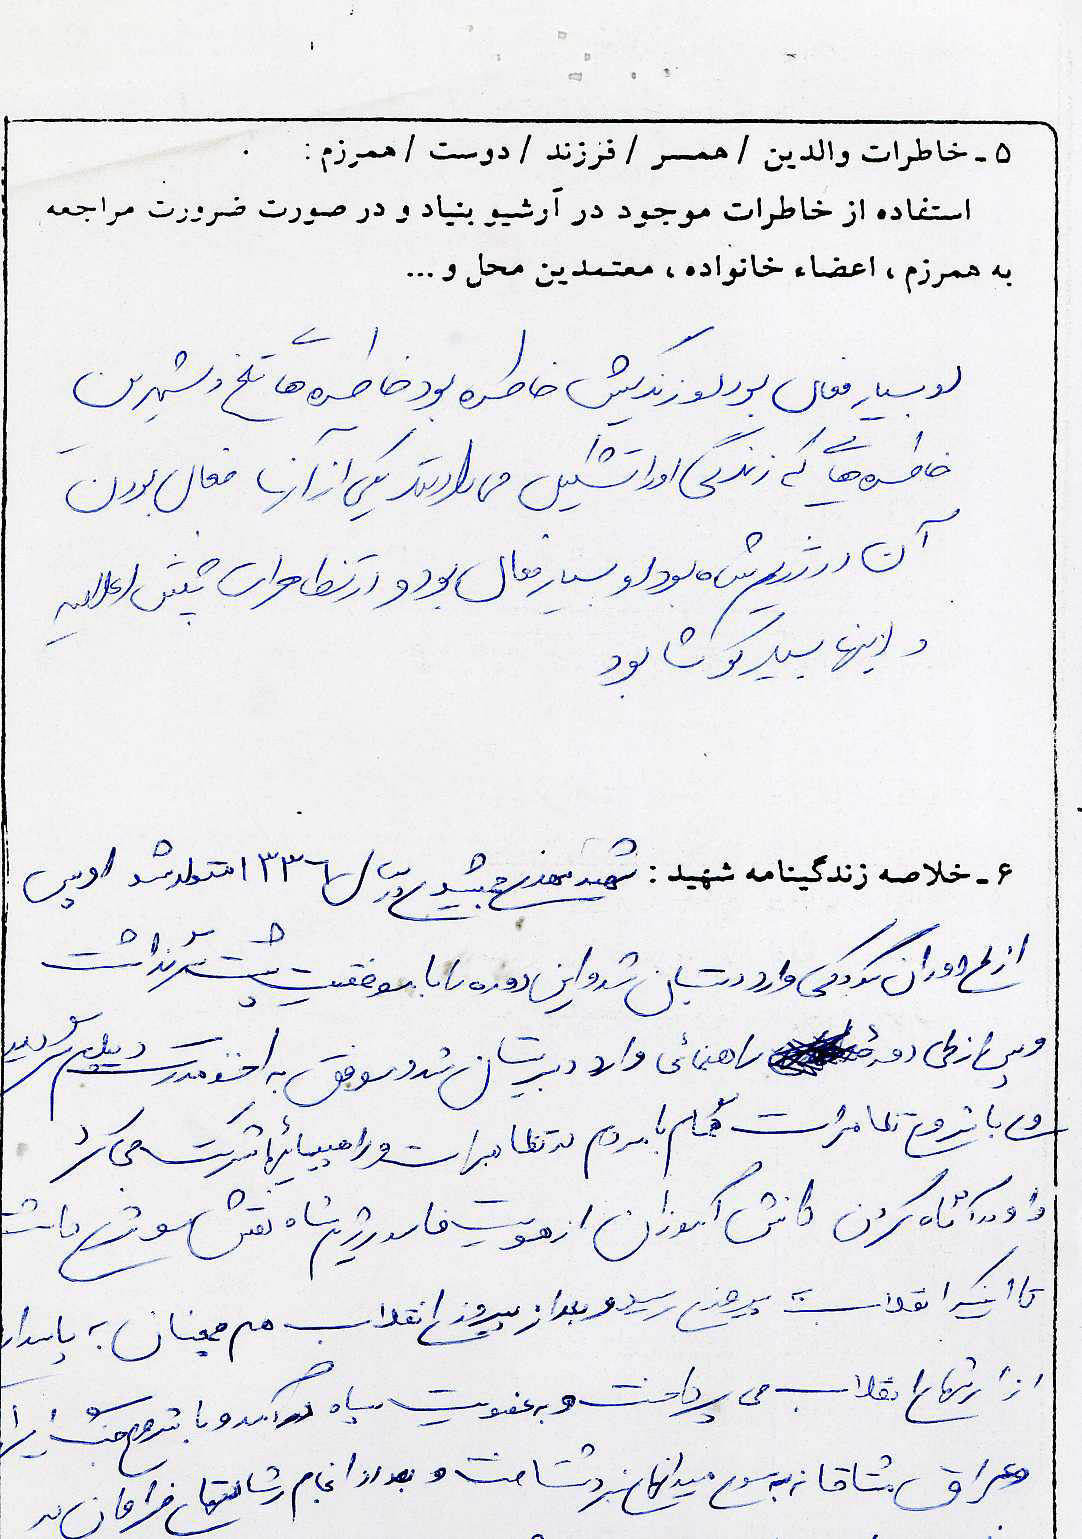 ۵ - خاطرات والدین / همسر / فرزند / دوست / همرزم :
استفاده از خاطرات موجود در آرشیو بنیاد و در صورت ضرورت مراجعه
به همرزم ، اعضاء خانواده ، معتمدین محل و ...
او بسیار فعال بود او زندگیش خاطره بود خاطره هایی تلخ و شیرین
خاطره هایی که زندگی او را تشکیل می دادند یکی از آنها فعال بودن
آن در رژیم شاه بود او بسیار فعال بود و در تظاهرات پخش اعلامیه
و اینها بسیار کوشا بود
۶ - خلاصه زندگینامه شهید : شهید جمشیدی در سال ۱۳۳۶ متولد شد او پس
از طی دوران کودکی وارد دبستان شد و این دوره را با موفقیت پشت سر گذاشت
و پس از طی دوره راهنمائی وارد دبیرستان شد و موفق به اخذ مدرک دیپلم گردید
وی با شروع تظاهرات همگام با مردم در تظاهرات و راهپیمائیها شرکت می کرد
و او در آگاه کردن دانش آموزان از هویت فاسد رژیم شاه نقش موثری داشت
تا اینکه انقلاب به پیروزی رسید و بعد از پیروزی انقلاب هم همچنان به پاسداری
از ارزشهای انقلاب می پرداخت و به عضویت سپاه در آمد و با شروع جنگ ایران
و عراق مشتاقانه به سوی میدانهای نبرد شتافت و بعد از انجام رشادتهای فراوان در